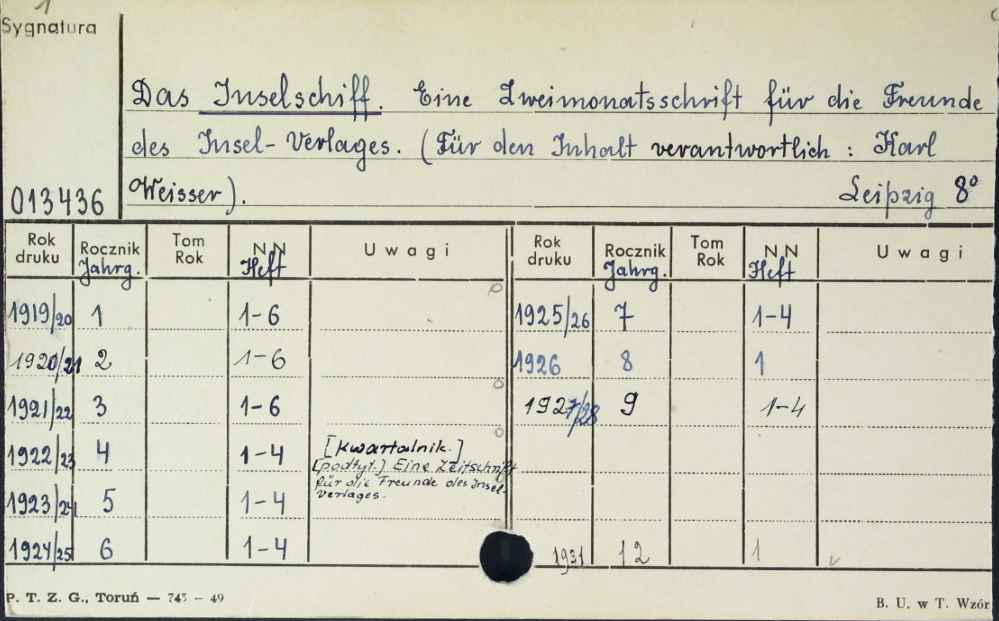 1
Sygnatura
Das Inselschiff. Eine Zweimonatsschrift für die Freunde
des Insel-Verlages. (Für den Inhalt verantwortlich : Karl
013436 Weisser). Leipzig 8°
Rok druku Rocznik Jahrg. Tom Rok NN Heft Uwagi Rok druku Rocznik Jahrg. Tom Rok NN Heft Uwagi
1919/20 1 1-6 1925/26 7 1-4
1920/21 2 1-6 1926 8 1
1921/22 3 1-6 1927/28 9 1-4
1922/23 4 1-4 [Kwartalnik.]
[podtyt.] Eine Zeitschrift
für die Freunde des Insel-
verlages.
1923/24 5 1-4
1924/25 6 1-4 1931 12 1
P. T. Z. G., Toruń — 745 – 49 B. U. w T. Wzór